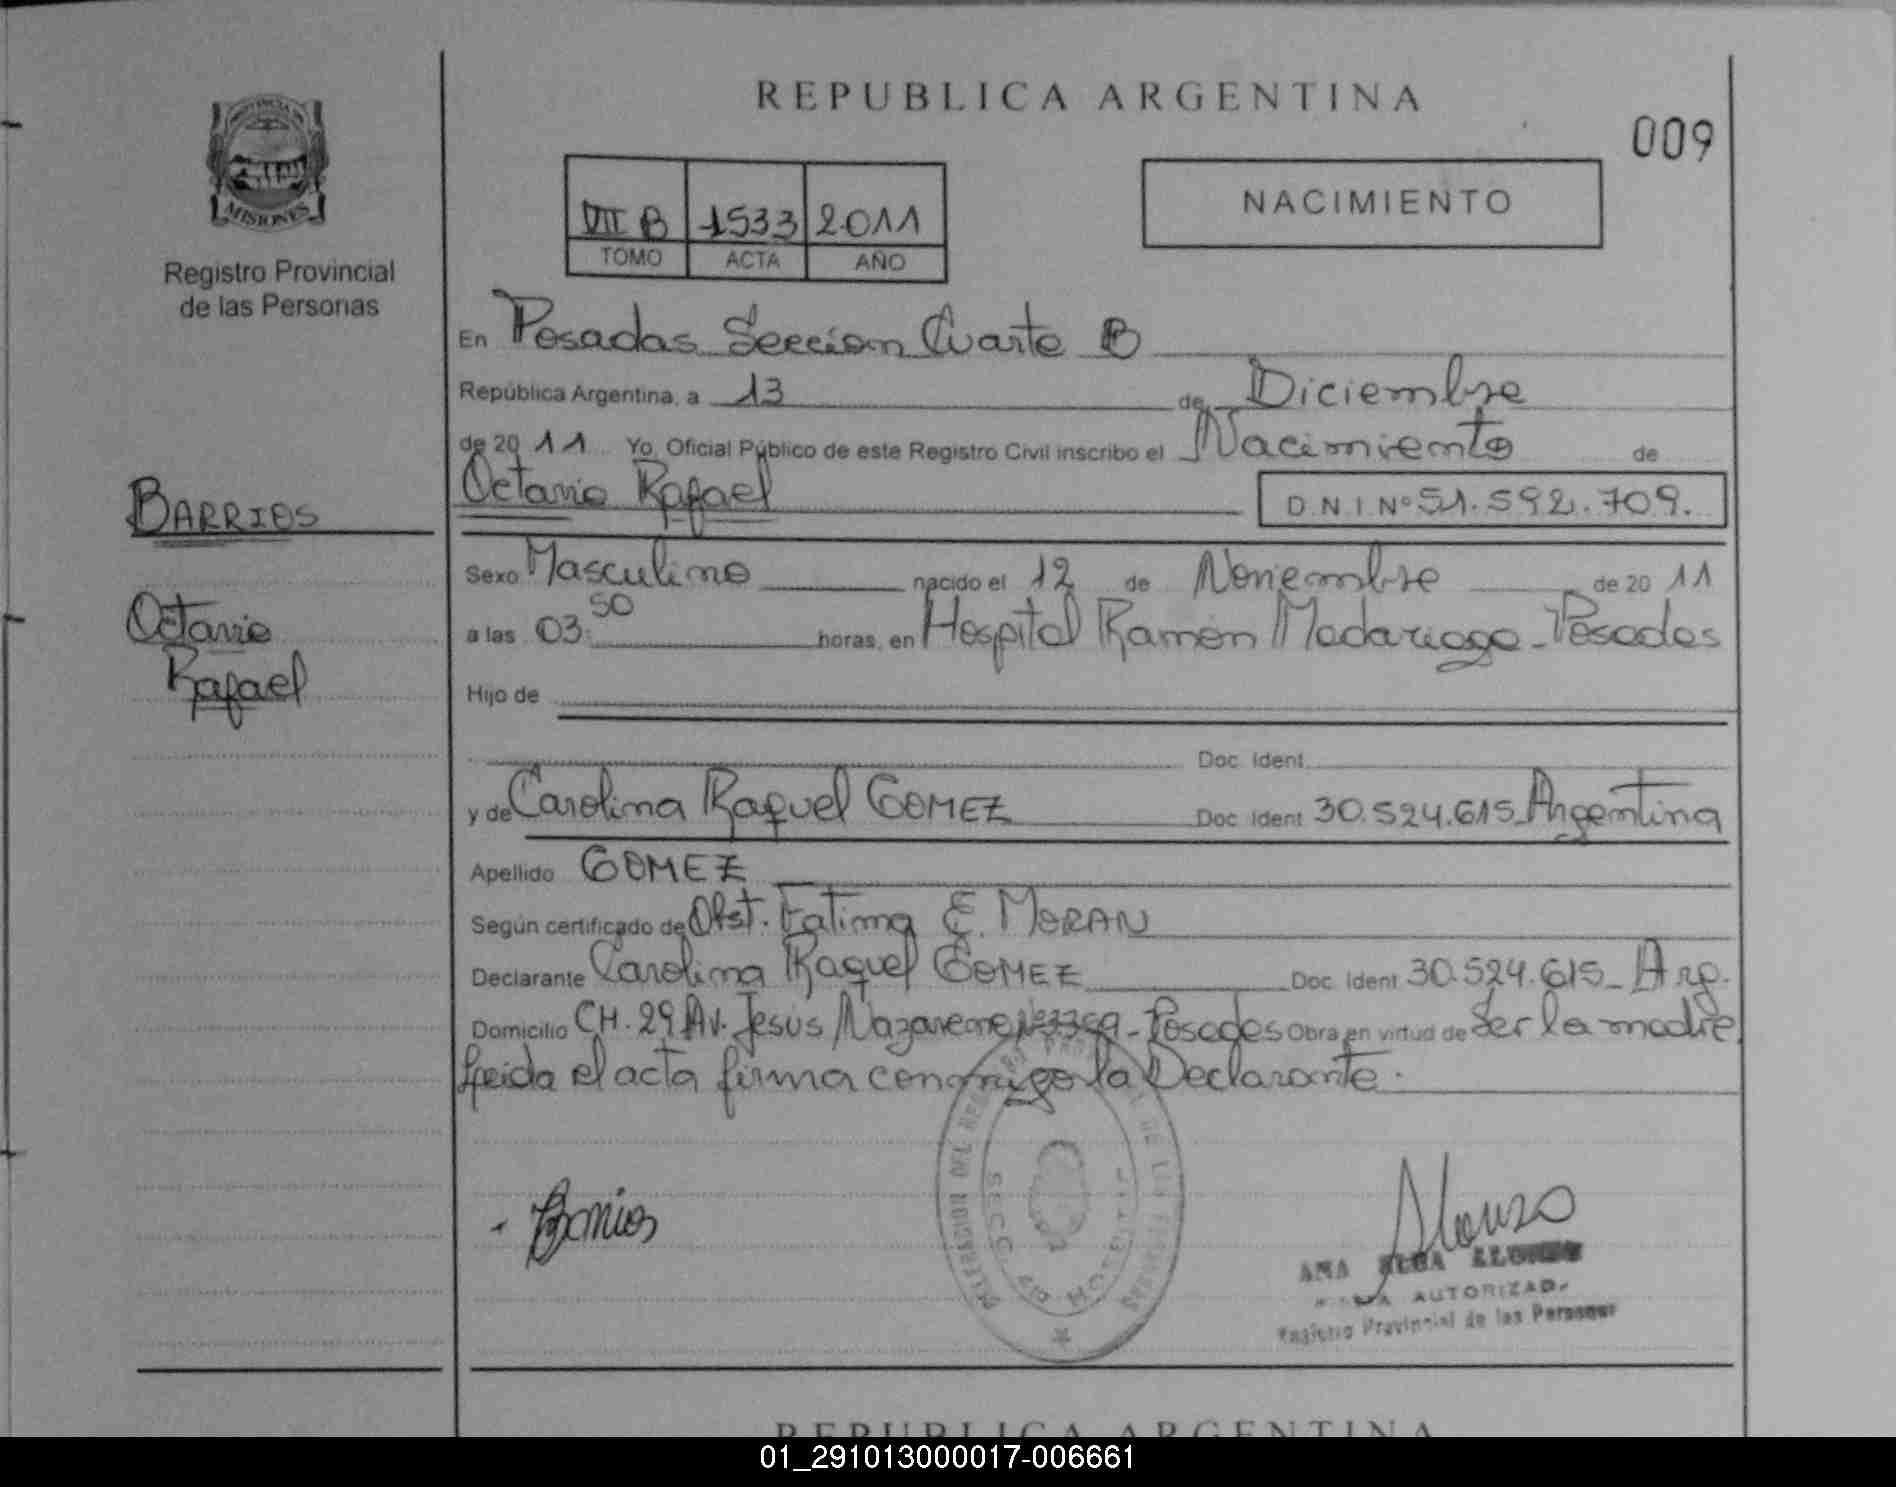 REPUBLICA ARGENTINA
009
MISIONES
Registro Provincial
de las Personas
VII B 1533 2011
TOMO ACTA AÑO
NACIMIENTO
En Posadas Sección Cuarta B
República Argentina, a 13 de Diciembre
de 20 11 Yo, Oficial Público de este Registro Civil inscribo el Nacimiento de
Octavio Rafael D.N.I Nº 51.592.709.
BARRIOS
Sexo Masculino nacido el 12 de Noviembre de 20 11
Octavio
Rafael
a las 03:50 horas, en Hospital Ramón Madariaga - Posadas
Hijo de
Doc. Ident.
y de Carolina Raquel GOMEZ Doc. Ident 30.524.615 Argentina
Apellido GOMEZ
Según certificado de Obst. Fatima E. MORAN
Declarante Carolina Raquel GOMEZ Doc. Ident 30.524.615_ Arg.
Domicilio CH. 29 Av. Jesus Nazareno - Posadas Obra en virtud de Ser la madre
Leida el acta firma conmigo la Declarante.
DELEGACION DEL REGISTRO PROVINCIAL DE LAS PERSONAS
SECC. 4ta HOSPITAL
Barrios
Alonso
ANA ELBA ALONSO
FIRMA AUTORIZADA
Registro Provincial de las Personas
REPUBLICA ARGENTINA
01_291013000017-006661